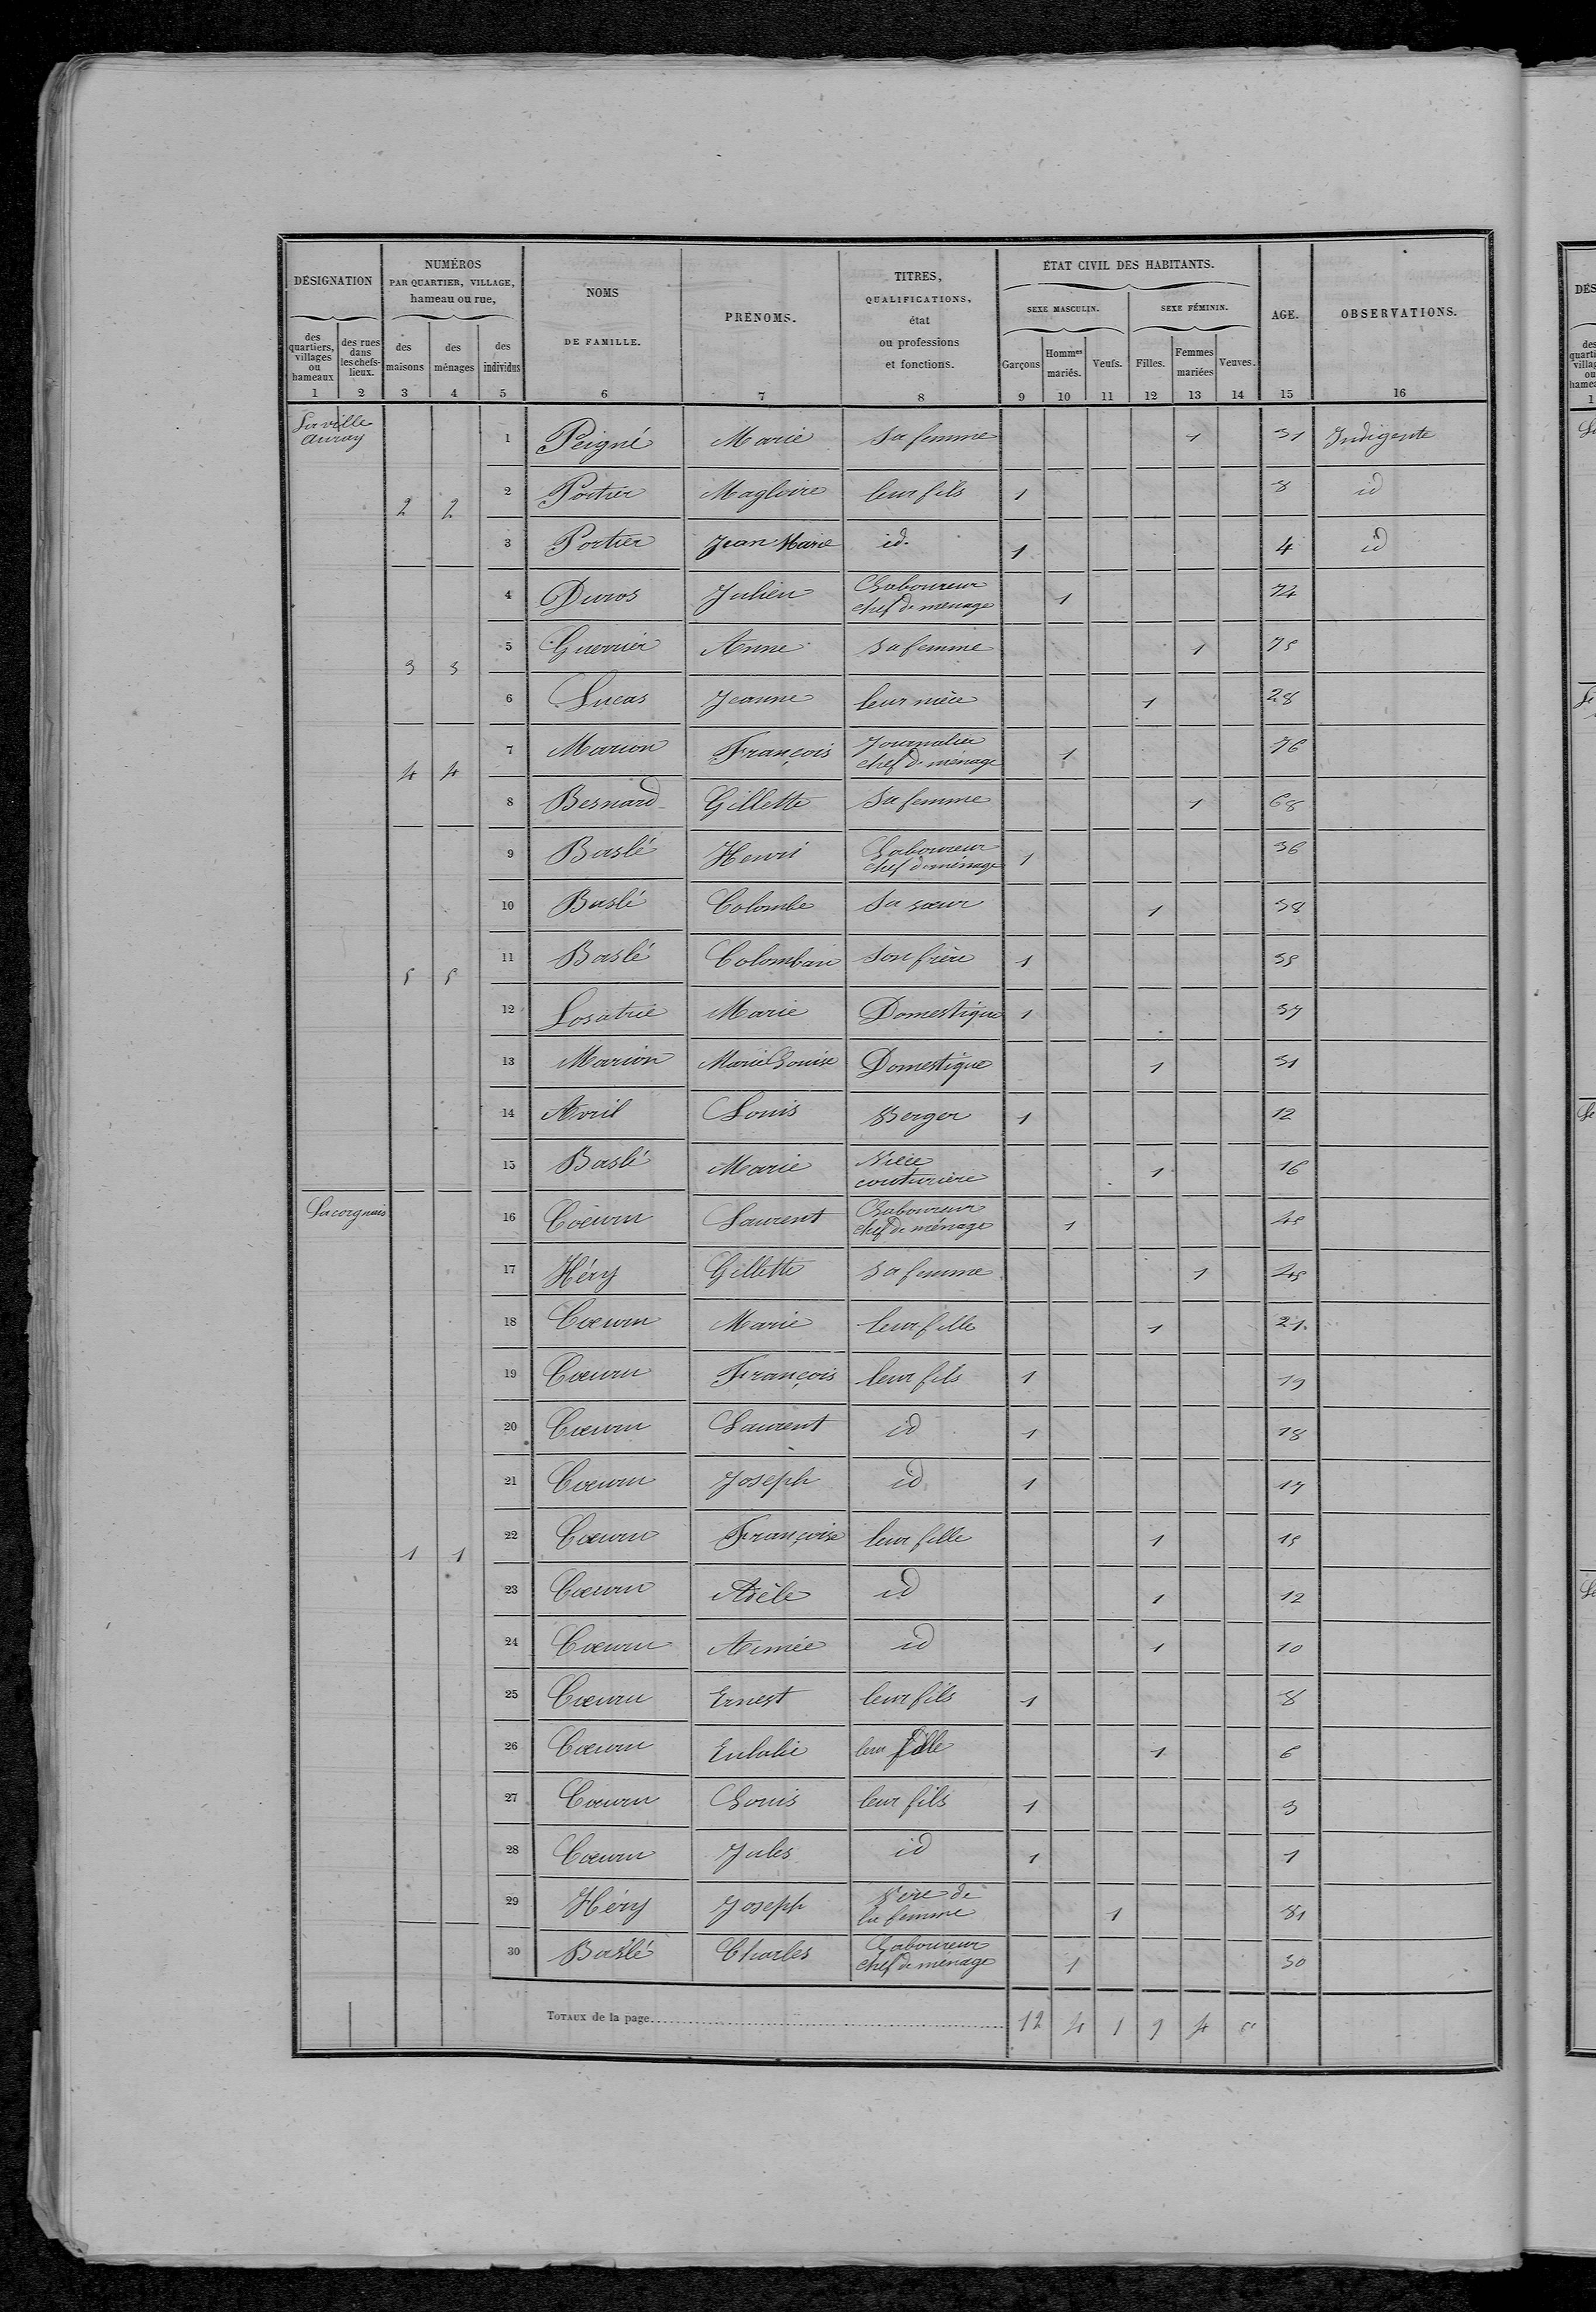 DÉSIGNATION
NUMÉROS
PAR QUARTIER, VILLAGE,
hameau ou rue,
NOMS
DE FAMILLE.
PRÉNOMS.
TITRES,
QUALIFICATIONS,
état
ou professions
et fonctions.
ÉTAT CIVIL DES HABITANTS.
SEXE MASCULIN.
SEXE FÉMININ.
AGE.
OBSERVATIONS.
des quartiers, villages ou hameaux
des rues dans les chefs-lieux.
des maisons
des ménages
des individus
Garçons
Hommes mariés.
Veufs.
Filles.
Femmes mariées
Veuves.
1 2 3 4 5 6 7 8 9 10 11 12 13 14 15 16
La ville auray
1 Peigné Marie Sa femme 1 31 Indigente
2 2 2 Portier Magloire leur fils 1 8 id
3 Portier Jean Marie id. 1 4 id
4 Duros Julien Laboureur chef de ménage 1 74
3 3 5 Guerrier Anne Sa femme 1 75
6 Lucas Jeanne leur nièce 1 28
7 Marion François Journalier chef de ménage 1 76
4 4 8 Besnard Gillette Sa femme 1 68
9 Baslé Henri Laboureur chef de ménage 1 36
10 Baslé Colombe Sa sœur 1 38
5 5 11 Baslé Colomban Son frère 1 35
12 Marie Domestique 1 37
13 Marion Marie Louise Domestique 1 31
14 Avril Louis Berger 1 12
15 Baslé Marie Nièce couturière 1 16
Lacorgnais
16 Coeuru Laurent Laboureur chef de ménage 1 45
17 Héry Gillette Sa femme 1 45
18 Coeuru Marie leur fille 1 21
19 Coeuru François leur fils 1 19
20 Coeuru Laurent id 1 18
21 Coeuru Joseph id 1 17
1 1 22 Coeuru Françoise leur fille 1 15
23 Coeuru Adèle id 1 12
24 Coeuru Aimée id 1 10
25 Coeuru Ernest leur fils 1 8
26 Coeuru Eulalie leur fille 1 6
27 Coeuru Louis leur fils 1 3
28 Coeuru Jules id 1 1
29 Héry Joseph Père de la femme 1 81
30 Baslé Charles Laboureur chef de ménage 1 30
TOTAUX de la page 12 4 1 9 4 «